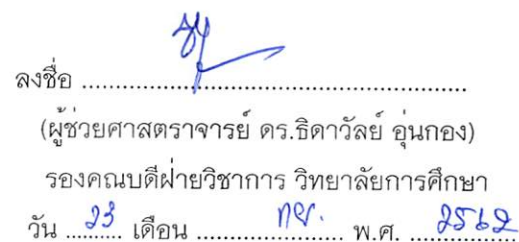 ลงชื่อ ........................................................
(ผู้ช่วยศาสตราจารย์ ดร.ธิดาวัลย์ อุ่นกอง)
รองคณบดีฝ่ายวิชาการ วิทยาลัยการศึกษา
วัน 23 เดือน กย. พ.ศ. 2562